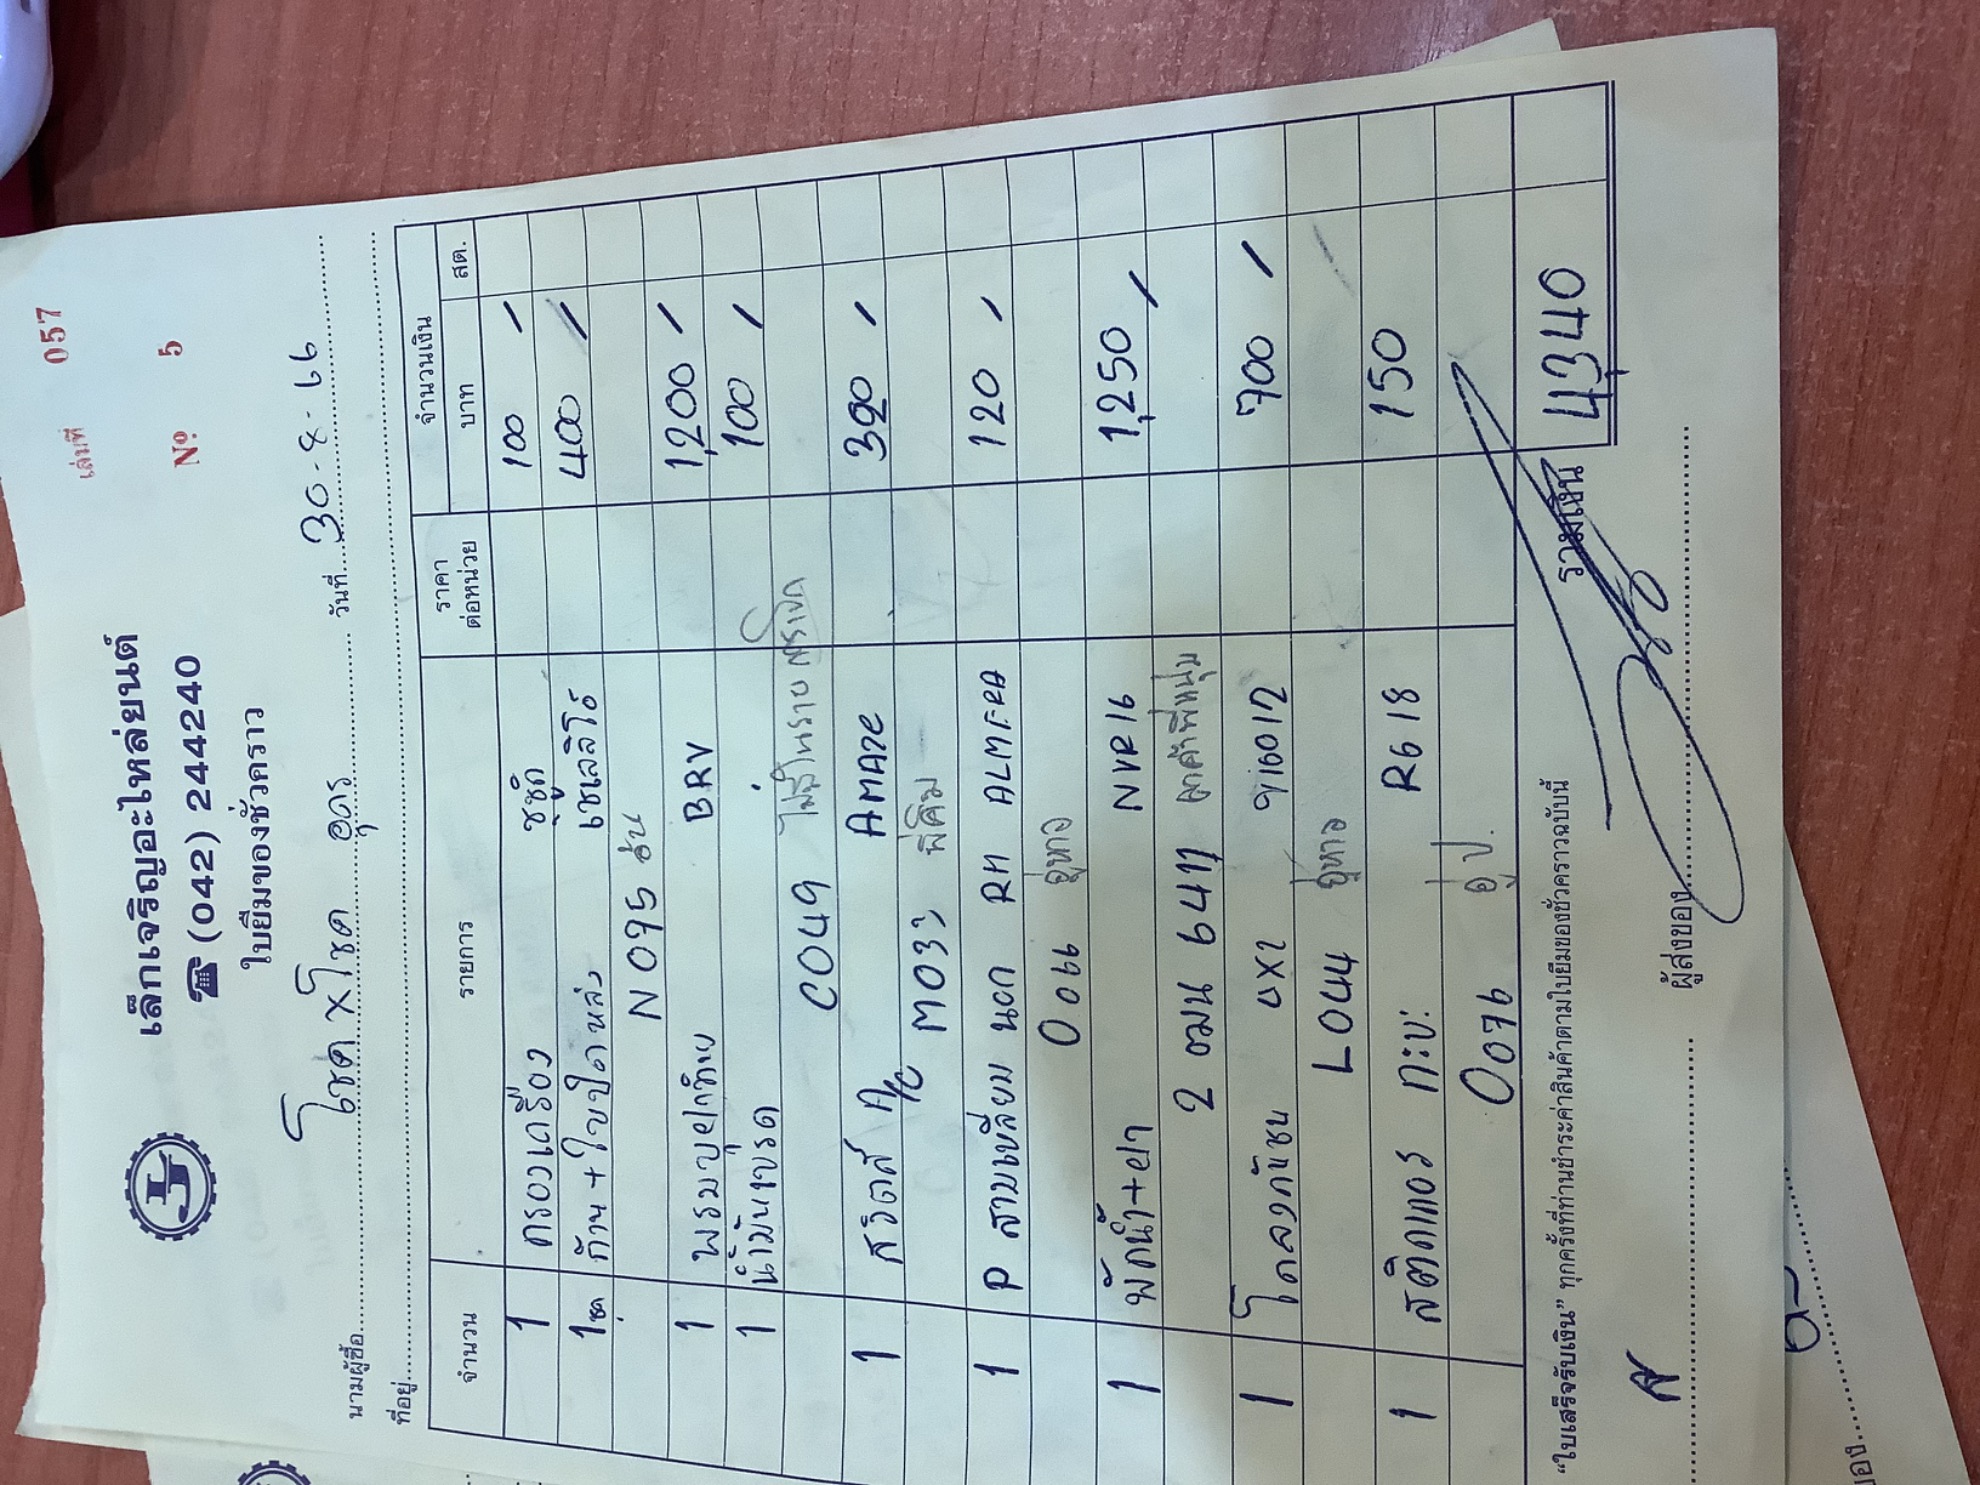 เล่มที่ 057
เล็กเจริญอะไหล่ยนต์
☎ (042) 244240
Nº 5
ใบยืมของชั่วคราว
นามผู้ซื้อ โชค x โชค อุดร วันที่ 30-8-66
ที่อยู่
จำนวน รายการ ราคาต่อหน่วย จำนวนเงิน
บาท สต.
1 กรองเครื่อง ซูซูกิ 100
1 ชุด ก้าน+ใบปัดหลัง เชเลลิโอ้ 400
N095
1 พรมปูยาง BRV 1,200
1 น้ำมันเบรค 100
C049
1 สวิตส์ A/C AMAZE
M033
1 P สามเหลี่ยม นอก RH ALMERA 120
0066 อู่หาว
1 พักน้ำ+ฝา NVR16 1,250
2 ฒน 6411 ลูกค้าพี่หนุ่ม
1 โคลงกันชน 700
L044 อู่หาว
1 สติกเกอร์ กะบะ R618 150
0076 อู่ ป.
รวมเงิน 4,340
“ใบเสร็จรับเงิน” ทุกครั้งที่ท่านชำระค่าสินค้าตามใบยืมของชั่วคราวฉบับนี้
ผู้ส่งของ